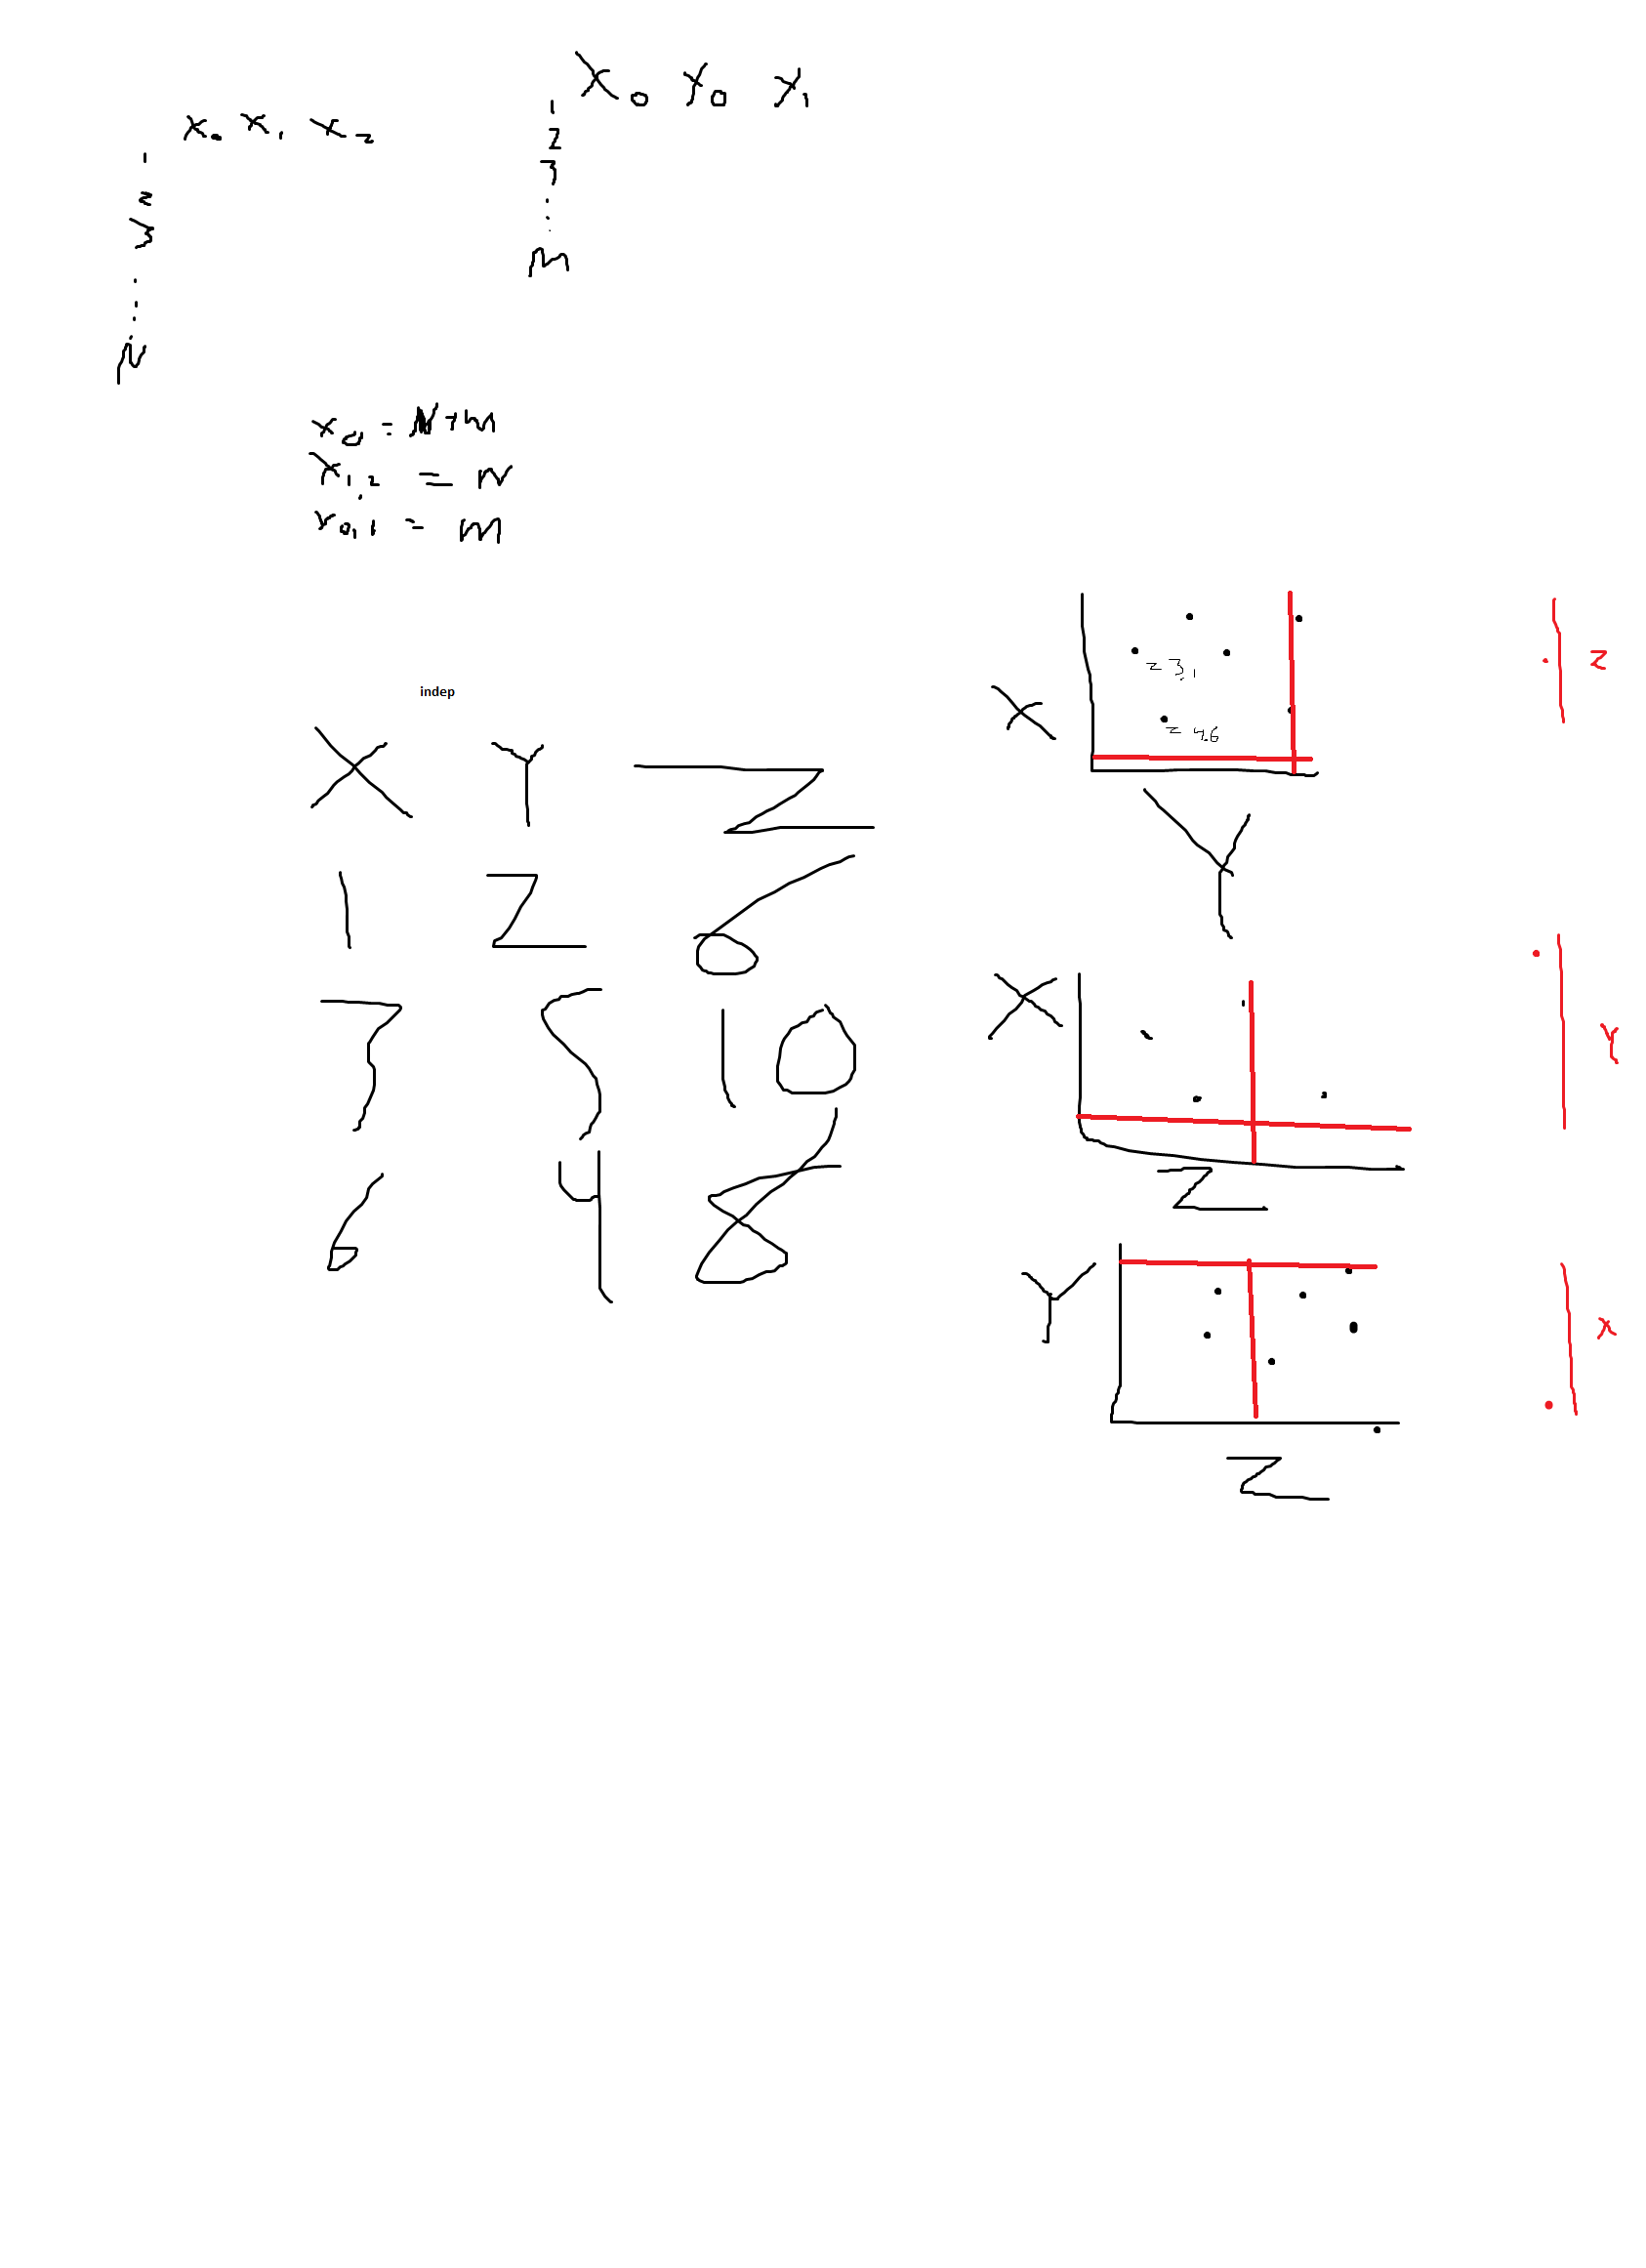 X₀ X₁ X₂
1
2
3
.
.
.
N
X₀ Y₀ Y₁
1
2
3
.
.
.
M
X₀ = N+M
X₁,₂ = N
Y₀,₁ = M
indep
X Y Z
1 2 6
3 5 10
6 4 8
X
Z 3.1
Z 4.6
Y
Z
X
Z
Y
Y
Z
X